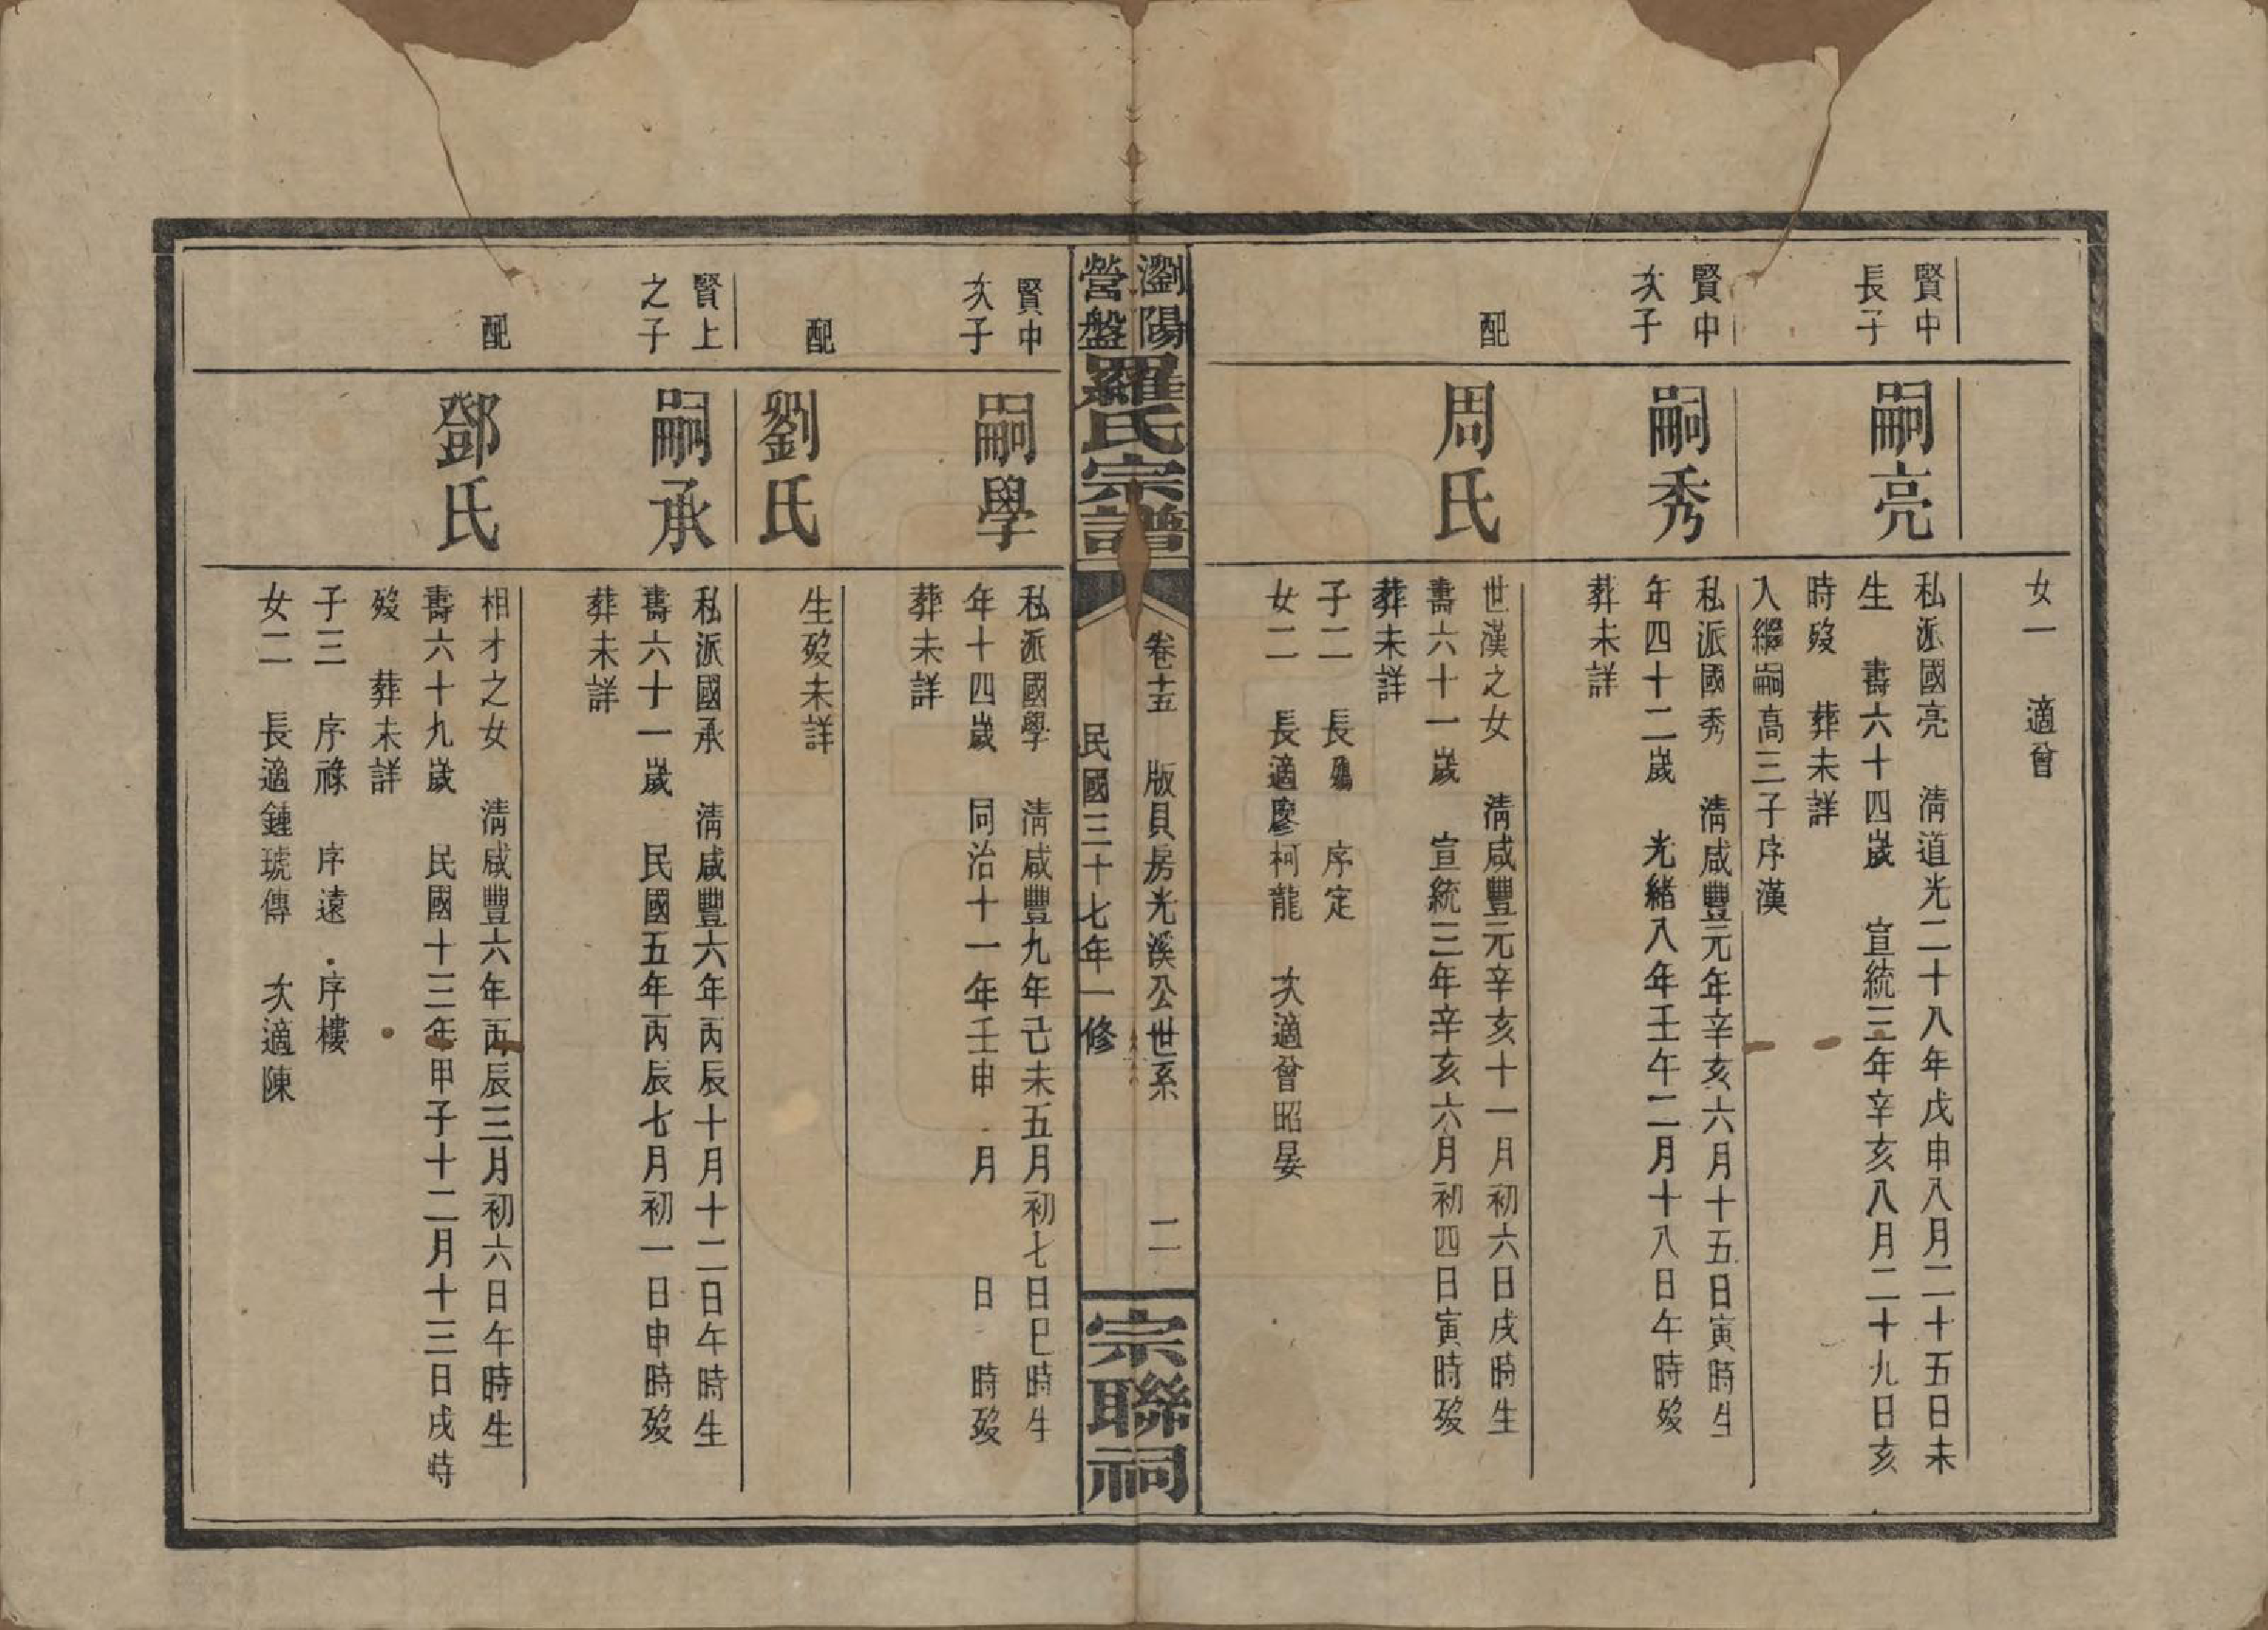 女一　適曾
賢中長子
嗣亮
私派國亮　清道光二十八年戊申八月二十五日未
生　壽六十四歲　宣統三年辛亥八月二十九日亥
時歿　葬未詳
入繼嗣高三子序漢
賢中次子
嗣秀
私派國秀　清咸豐元年辛亥六月十五日寅時生
年四十二歲　光緒八年壬午二月十八日午時歿
葬未詳
配
周氏
世漢之女　清咸豐元辛亥十一月初六日戌時生
壽六十一歲　宣統三年辛亥六月初四日寅時歿
葬未詳
子二　長殤　序定
女二　長適廖柯龍　次適曾昭晏
瀏陽營盤羅氏宗譜
卷十五　版貝房光溪公世系　二
民國三十七年一修
宗聯祠
賢中次子
嗣學
私派國學　清咸豐九年己未五月初七日巳時生
年十四歲　同治十一年壬申　月　　日　時歿
葬未詳
配
劉氏
生歿未詳
賢上之子
嗣承
私派國承　清咸豐六年丙辰十月十二日午時生
壽六十一歲　民國五年丙辰七月初一日申時歿
葬未詳
配
鄧氏
相才之女　清咸豐六年丙辰三月初六日午時生
壽六十九歲　民國十三年甲子十二月十三日戌時
歿　葬未詳
子三　序祿　序遠　序樓
女二　長適鍾琥傳　次適陳